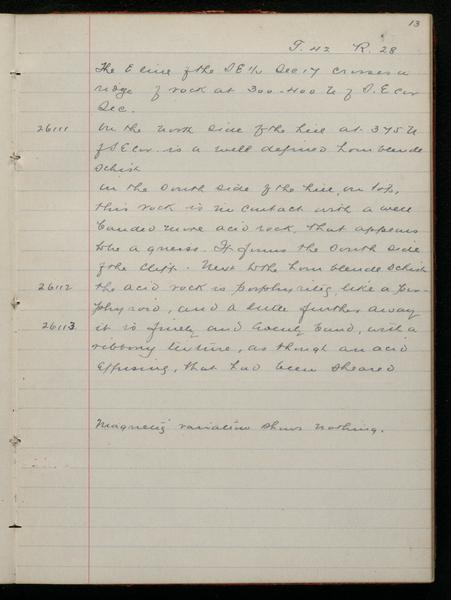 13
T. 42 R. 28
The E line of the SE 1/4 Sec 17 crosses a
ridge of rock at 300-400 N of S.E cor
Sec.
26111 On the north side of the hill at 375 N
of SE cor. is a well defined hornblende
schist
On the south side of the hill, on top,
this rock is in contact with a well
banded more acid rock, that appears
to be a gneiss. It forms the south side
of the cliff. Next to the hornblende schist
26112 the acid rock is porphyritic, like a por-
phyroid, and a little further away
26113 it is finely and evenly band, with a
ribbony texture, as though an acid
effusive, that had been sheared
Magnetic variation shows nothing.